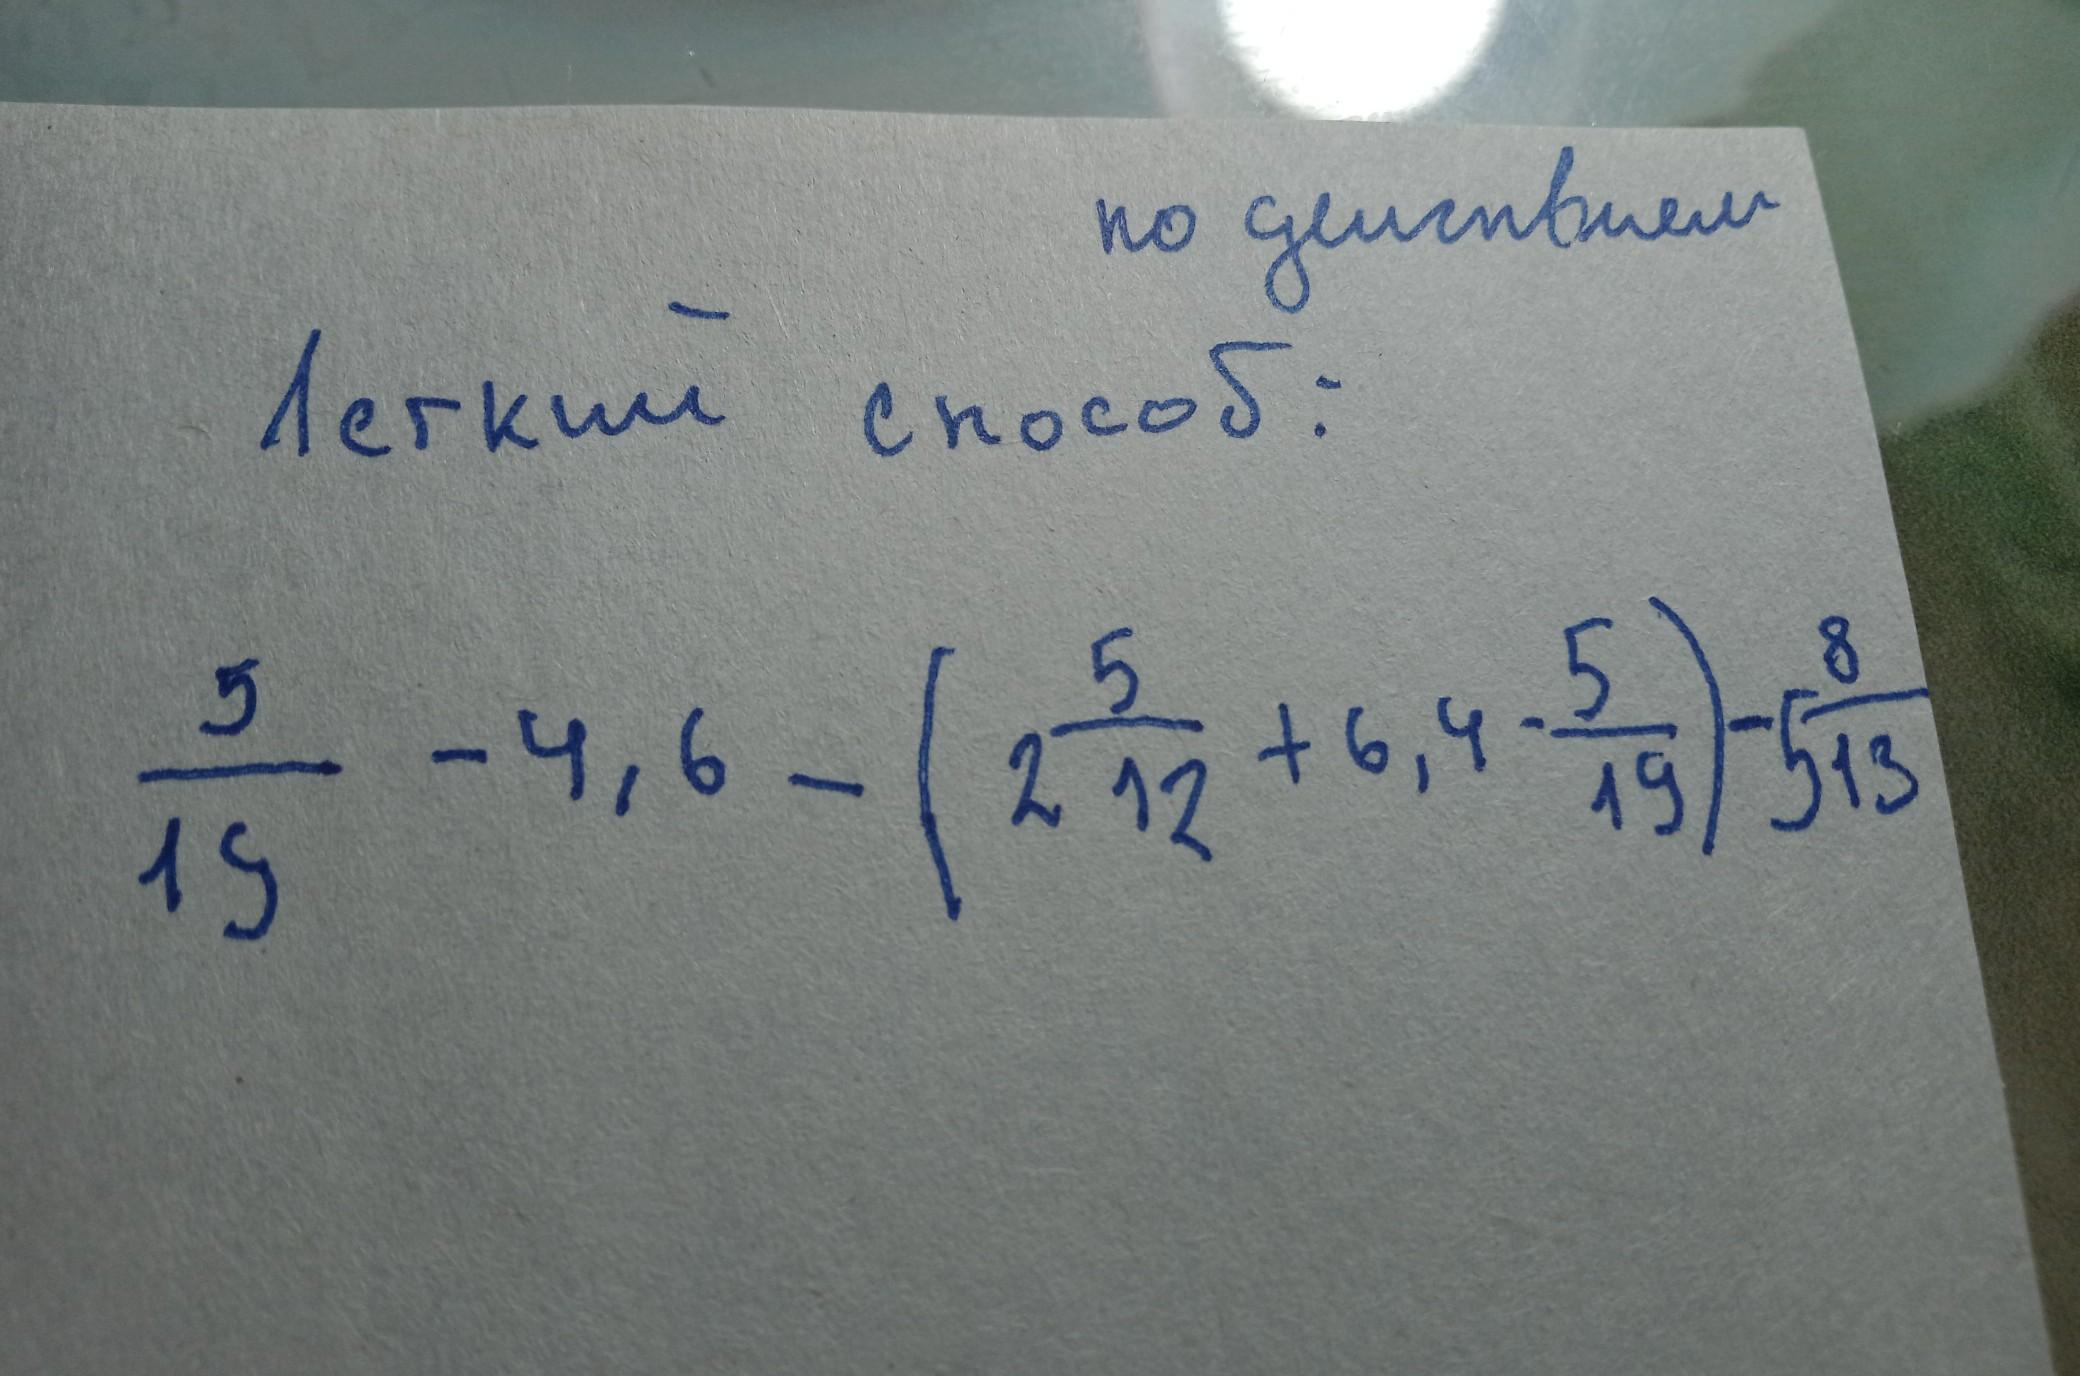 по деиствием
Легкий способ:
5/19 - 4,6 - (2 5/12 + 6,4 - 5/19) - 5 8/13